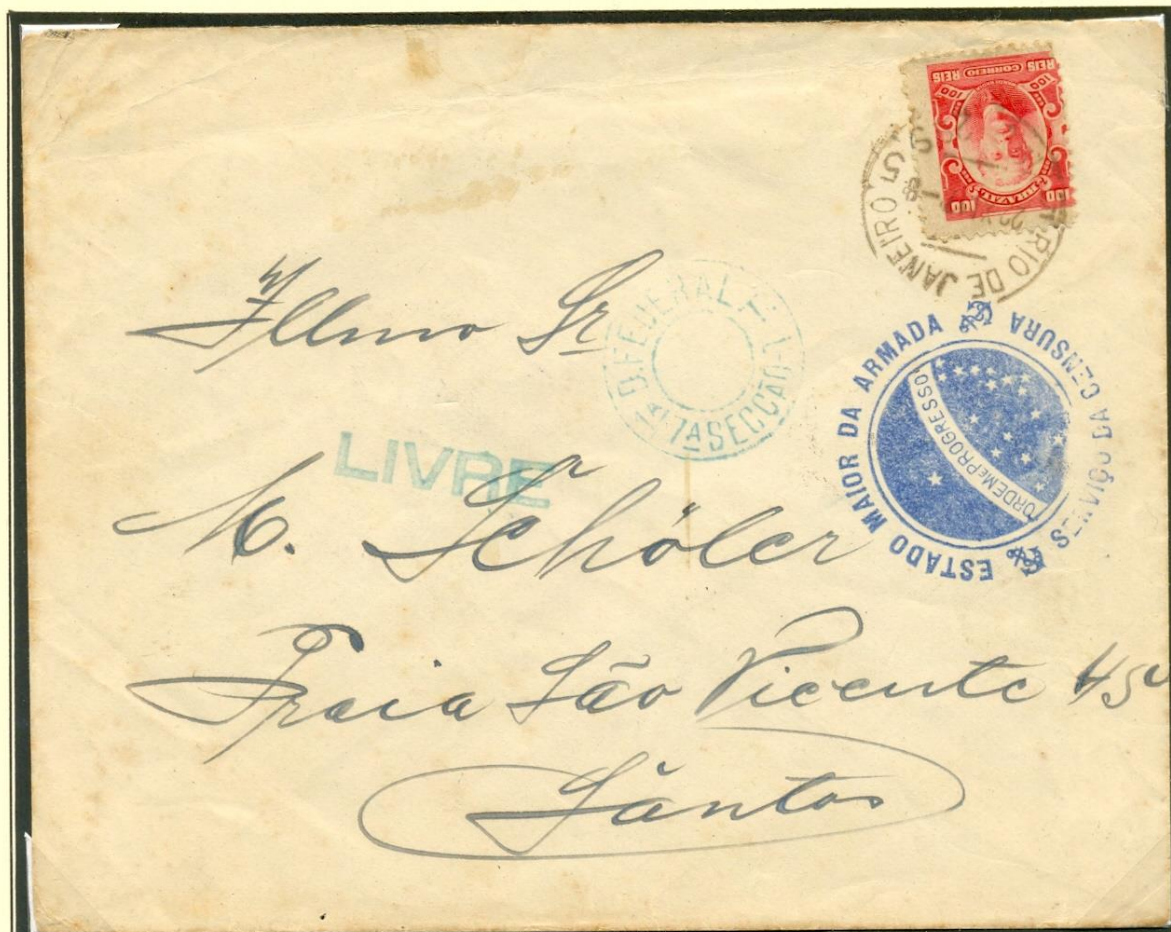 100 REIS CORREIO 100 REIS
100 BRAZIL 100
RIO DE JANEIRO 5
D. FEDERAL
1ª SECCÃO
ESTADO MAIOR DA ARMADA
SERVIÇO DA CENSURA
ORDEM e PROGRESSO
LIVRE
Illmo Sr
M. Schöler
Praia São Vicente
Santos